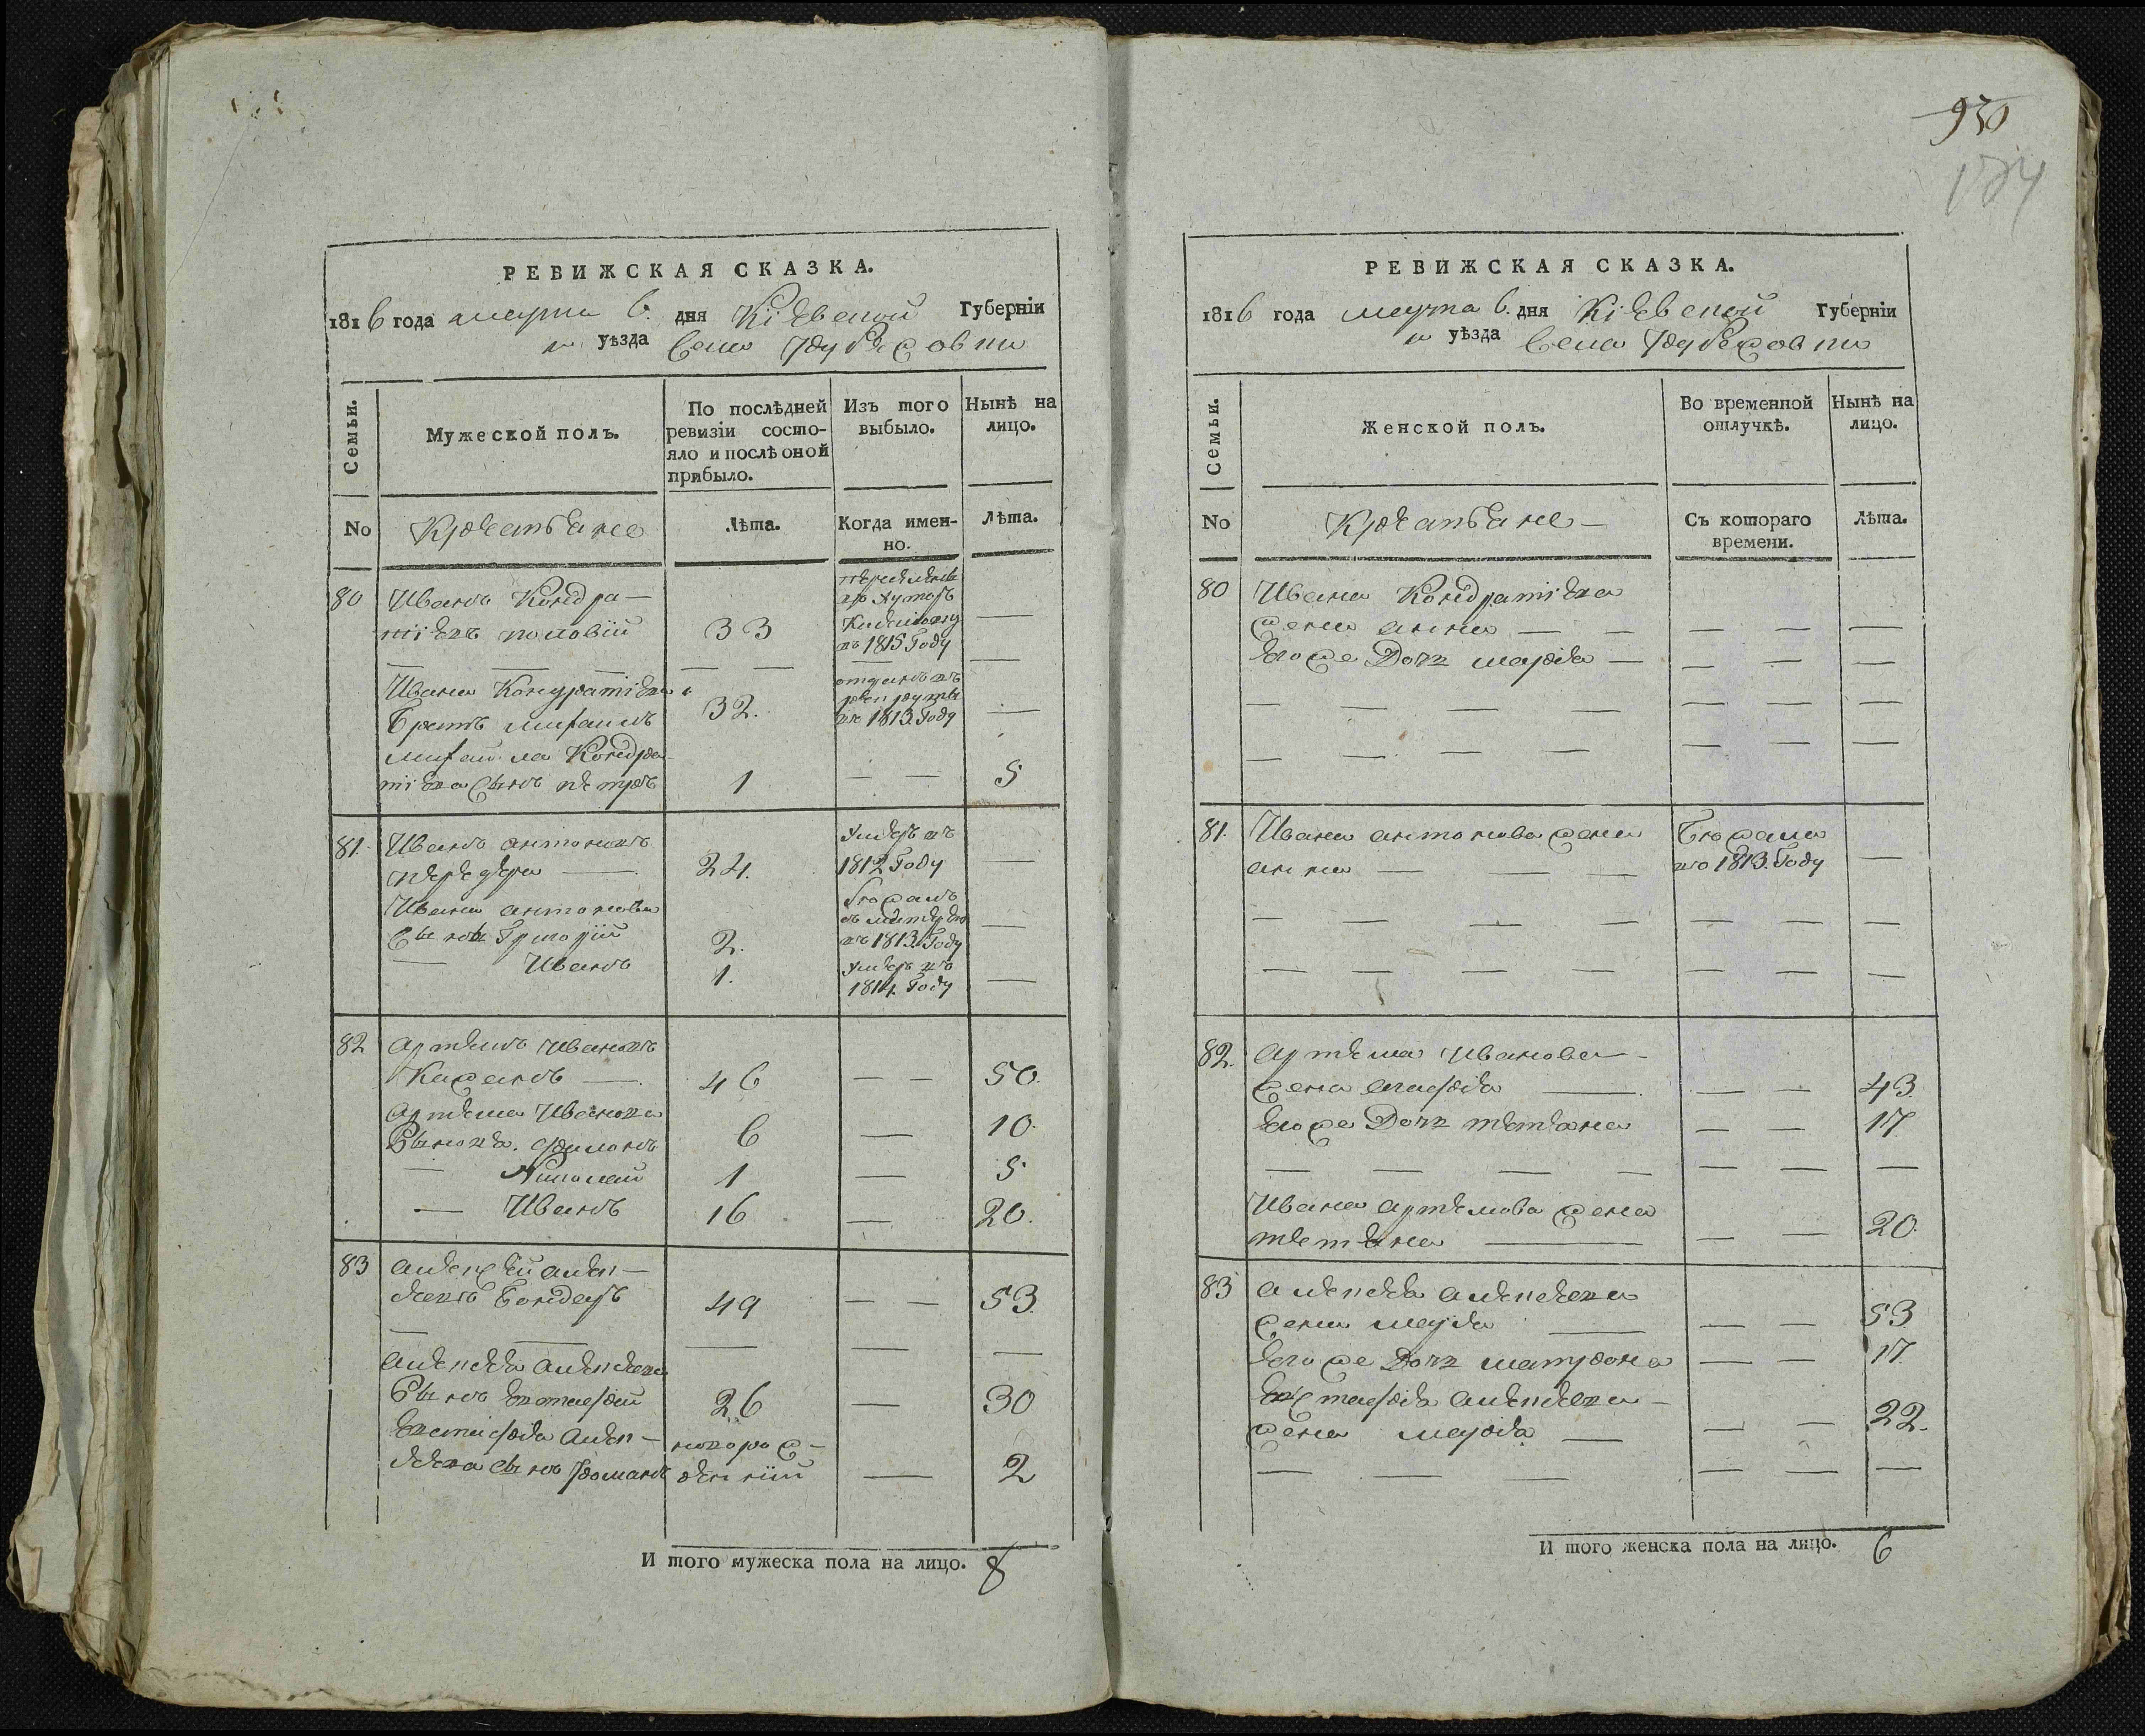 930
РЕВИЖСКАЯ СКАЗКА.
1816 года марта 6. дня Кіевской Губерніи
уѣзда Села
Семьи.
Мужеской полъ.
По послѣдней ревизіи состояло и послѣ оной прибыло.
Изъ того выбыло.
Нынѣ на лицо.
No
Крестьяне
Лѣта.
Когда именно.
Лѣта.
80
Иванъ Кондра-
тіевъ
33
въ 1815 Году
Ивана Кондратіева
Братъ Михаилъ
32.
отданъ въ
рекруты
въ 1813 Году
Михаила Кондра-
тіева Сынъ Петръ
1
5
81.
Иванъ Антоновъ
24.
Умеръ въ
1812 Году
Ивана Антонова
Сыновья Григорій
2.
въ 1813 Году
Иванъ
1.
Умеръ въ
1814 Году
82
Артемъ Ивановъ
46
50.
Артема Иванова
Сыновья. Филонъ
6
10.
Николай
1
5
Иванъ
16
20.
83
Алексѣй Алек-
сеевъ Бондарь
49
53.
Алексея Алексеева
Сынъ Евстафій
26
30
Евстафія Алек-
сеева сынъ Романъ
новорож-
денній
2
И того мужеска пола на лицо. 8
РЕВИЖСКАЯ СКАЗКА.
1816 года марта 6. дня Кіевской Губерніи
уѣзда Села
Семьи.
Женской полъ.
Во временной отлучкѣ.
Нынѣ на лицо.
No
Крестьяне
Съ котораго времени.
Лѣта.
80
Ивана Кондратіева
жена Анна
Его же Дочь Марія
81.
Ивана Антонова жена
Анна
Бежала
въ 1813 Году
82.
Артема Иванова
жена Агафія
43.
Его же Дочь Татіана
17
Ивана Артемова жена
Татіана
20.
83
Алексея Алексеева
жена Марія
53
Его же Дочь Матрона
17.
Евстафія Алексеева
жена Марія
22.
И того женска пола на лицо. 6